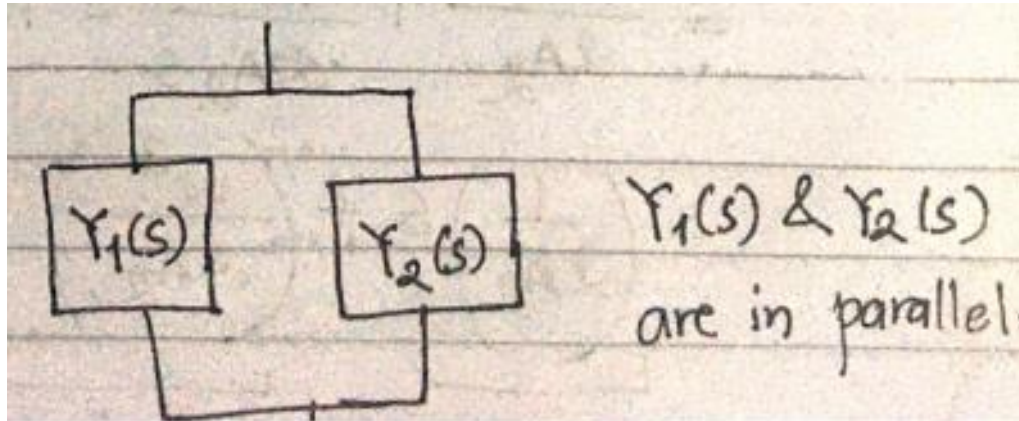 Y₁(s)
Y₂(s)
Y₁(s) & Y₂(s)
are in parallel